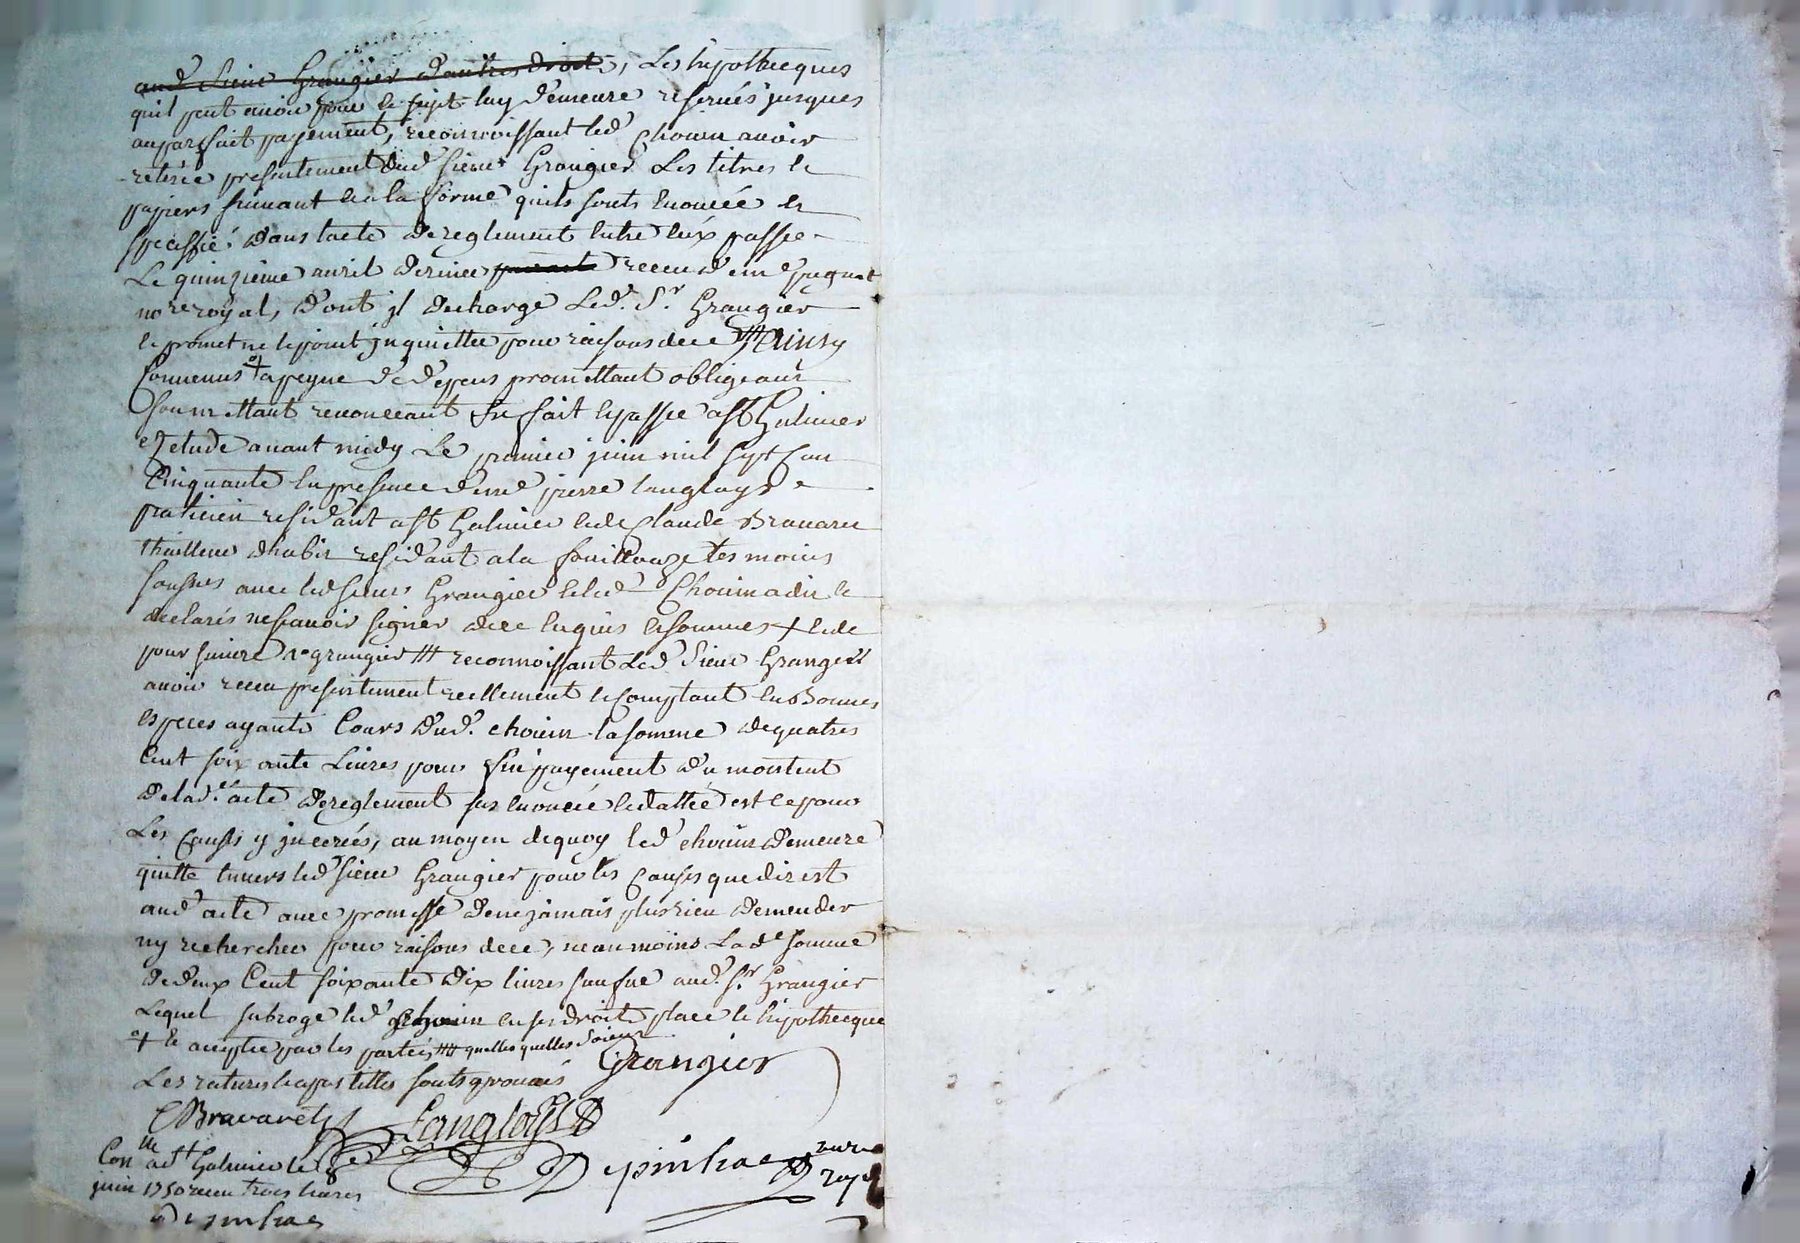 aud. sieur Grangier d'autres droits, Les hypothecques
quil peut avoir pour le sujet luy demeure reservés jusques
au parfait payement, reconnoissant led. Chouin avoir
retirée presentement dud. sieur Grangier Les titres et
papiers suivant et a la forme quils sonts enoncée et
specifié dans lacte de reglement entre eux passée
Le quinzieme avril dernier receu d'eme
no.re royal, dont jl decharge Led. Sr. Grangier
et promet ne le point jnquietter pour raisons de ce ainsy
Convenus a peyne de depens promettant obligeant
soumettant renonceant fait et passée a st Galmier
etude avant midy Le premier juin mil sept Cen
Cinquante en presence de me pierre Langlays
praticien residant a st Galmier et de Claude Bravaret
thailleur dhabis residant a la fouillouze tesmoins
sousnés avec led sieur Grangier et led. Chouin a dit et
declarés ne scavoir signer de ce enquis et sommés + et de
pour suivre grangier reconnoissant Led. sieur Grangier
avoir receu presentement reellement et Comptant en Bonnes
especes ayants Cours dud. chouin la somme de quatres
Cent soix ante Livres pour fin payement du montent
de lad. acte de reglement sus enoncée et dattée est ce pour
Les Causes y jncerées, au moyen de quoy led. chouin demeure
quitte envers led. sieur Grangier pour les Causes que dit est
aud. acte avec promesse de ne jamais plus rien demender
ny rechercher pour raisons de ce, neanmoins Lad.e somme
de deux Cent soixante dix livres sauf audt. Sr. Grangier
Lequel subroge led. chouin en ses droits place et hypothecque
+ et acceptée par les parties, quelles quelles soient
Les ratures et apostilles sonts aprouvés Grangier
CBravaret Langloys
Con.lle a st Galmier le 8e Depinhac no.re
juin 1750 receu trois livres royal
Depinhac